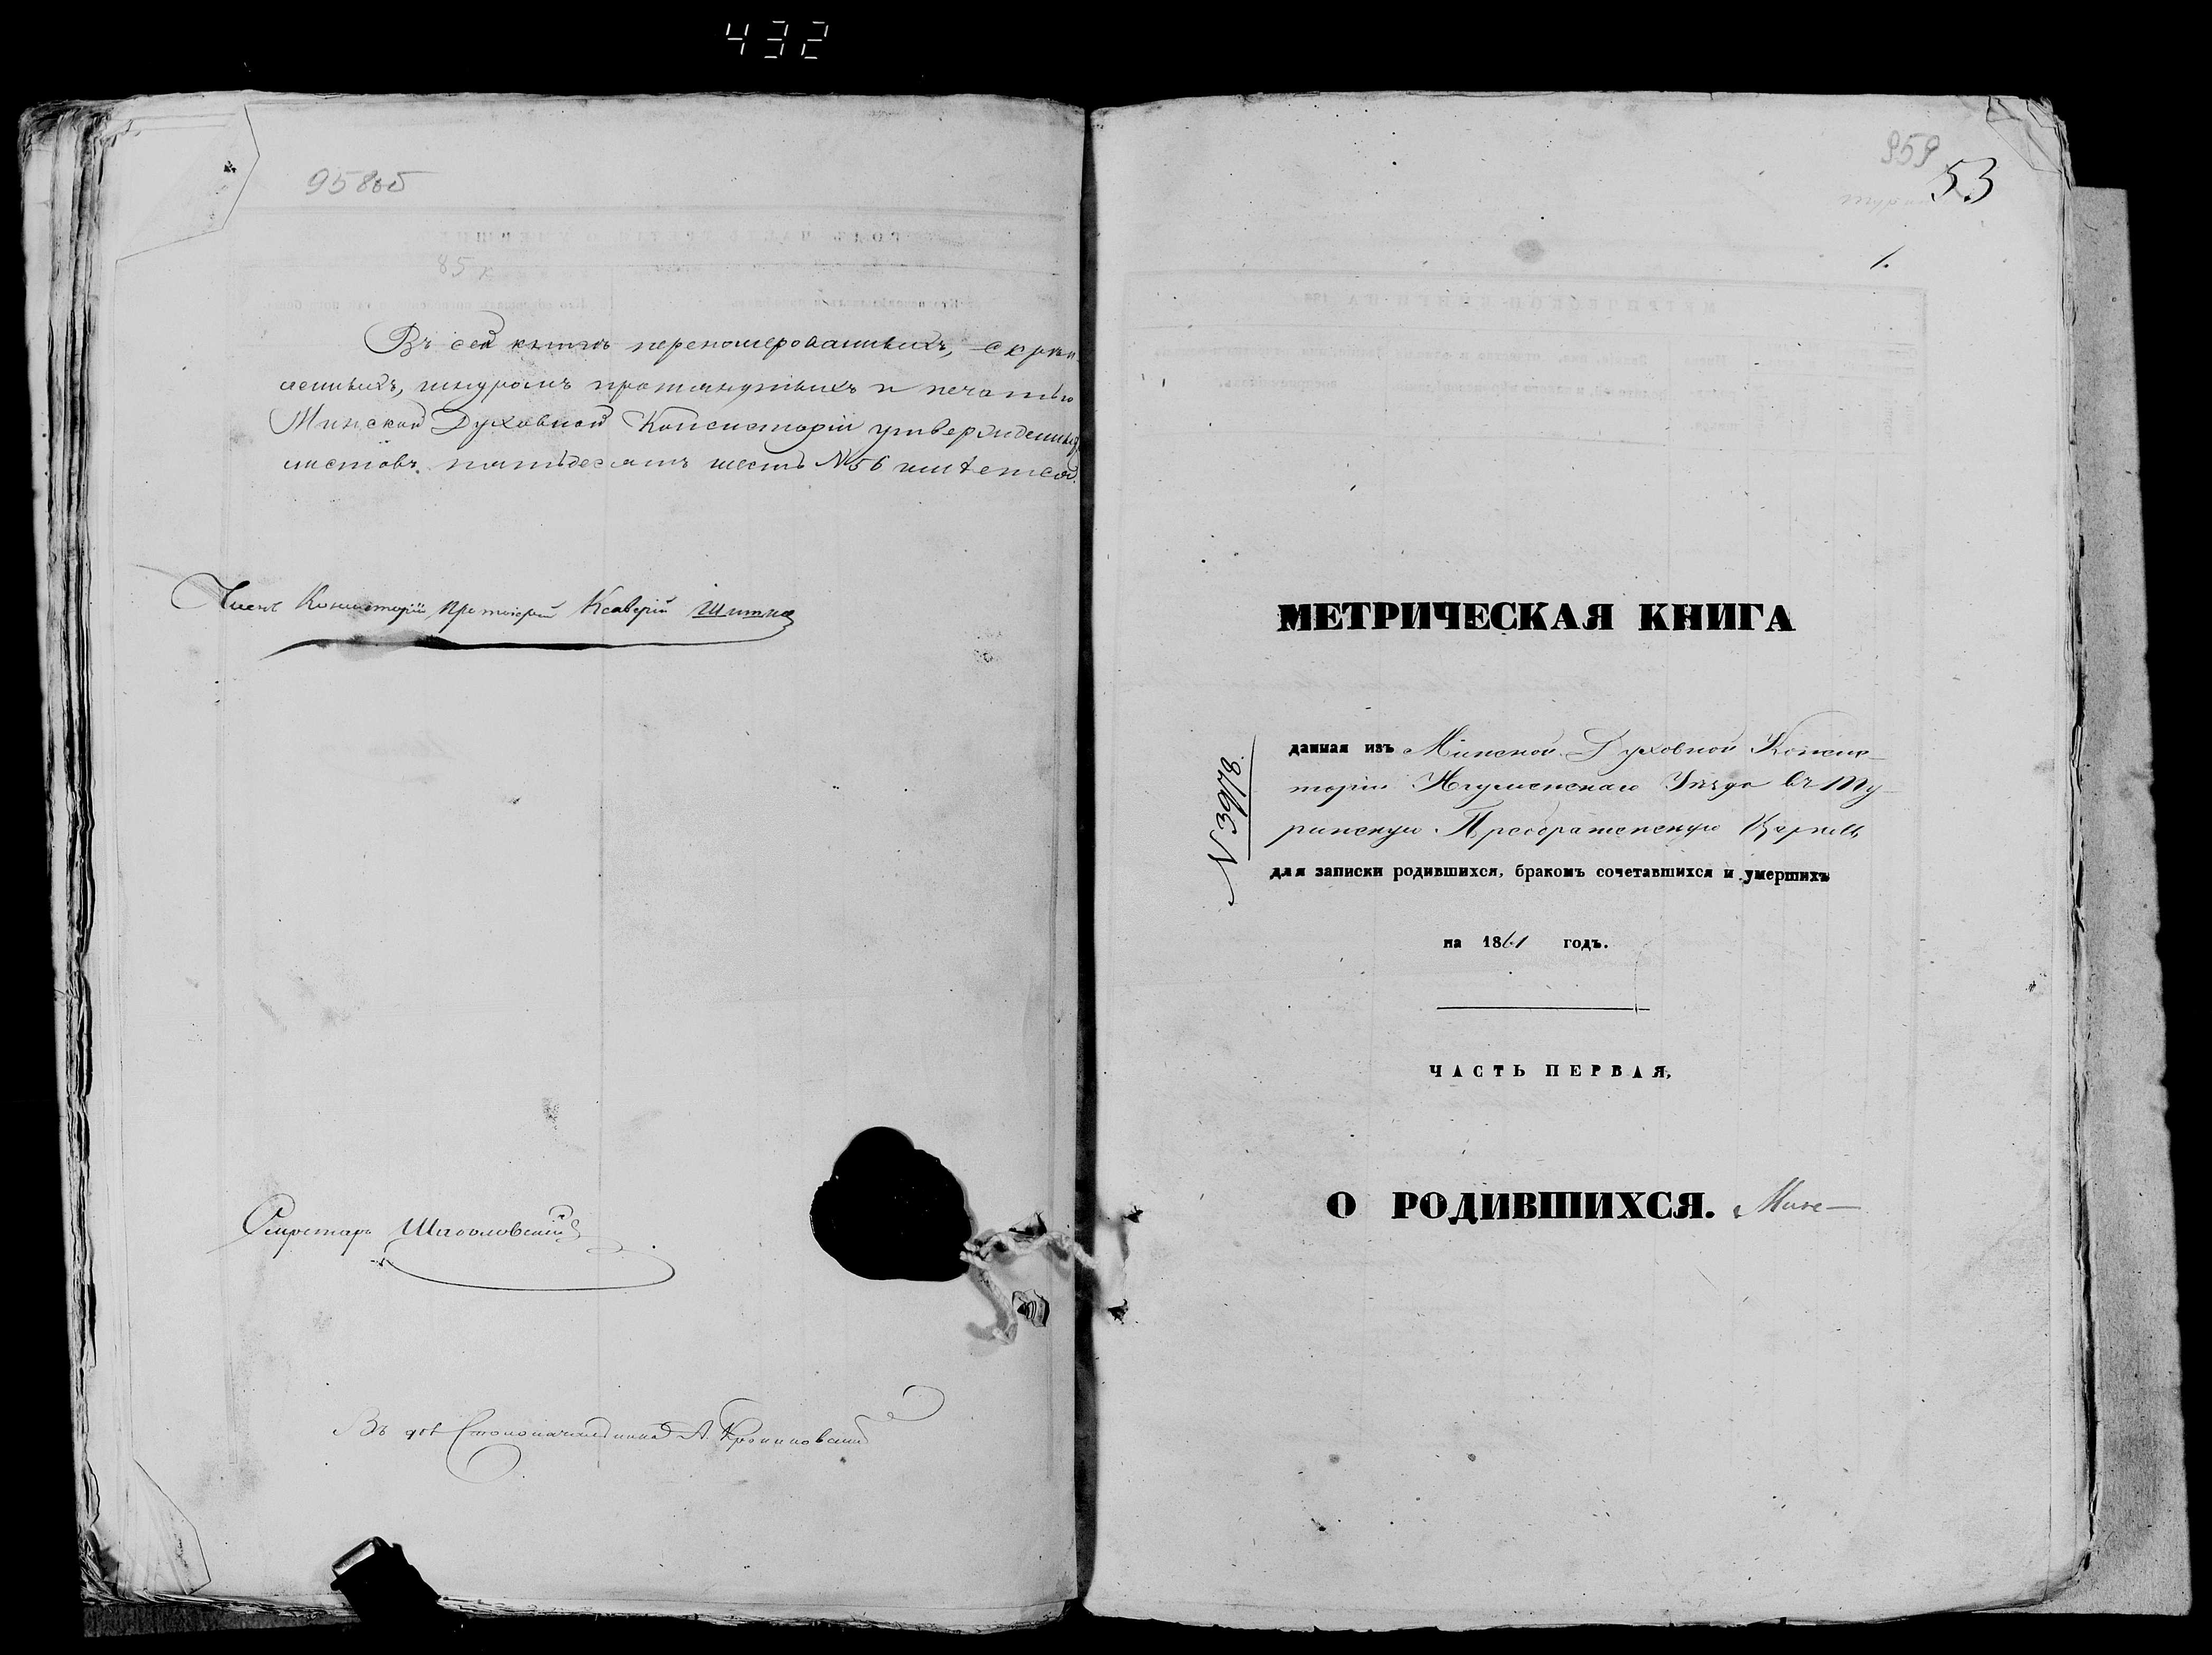 432
958об
85 к
Въ сей книгѣ переномерованныхъ, скрѣп-
ленныхъ, шнуромъ протянутыхъ и печатью
Минской Духовной Консисторіи утвержденныхъ
листовъ пятьдесятъ шесть №56 имѣется.
Членъ Консисторіи Протоіерей Ксаверій
Секретарь
Въ дол. Столоначальника А.
959
53
1.
МЕТРИЧЕСКАЯ КНИГА
№ 3978
данная изъ Минской Духовной Консис-
торіи Игуменскаго Уѣзда въ Ту-
ринскую Преображенскую Церковь
для записки родившихся, бракомъ сочетавшихся и умершихъ
на 1861 годъ.
ЧАСТЬ ПЕРВАЯ,
О РОДИВШИХСЯ.